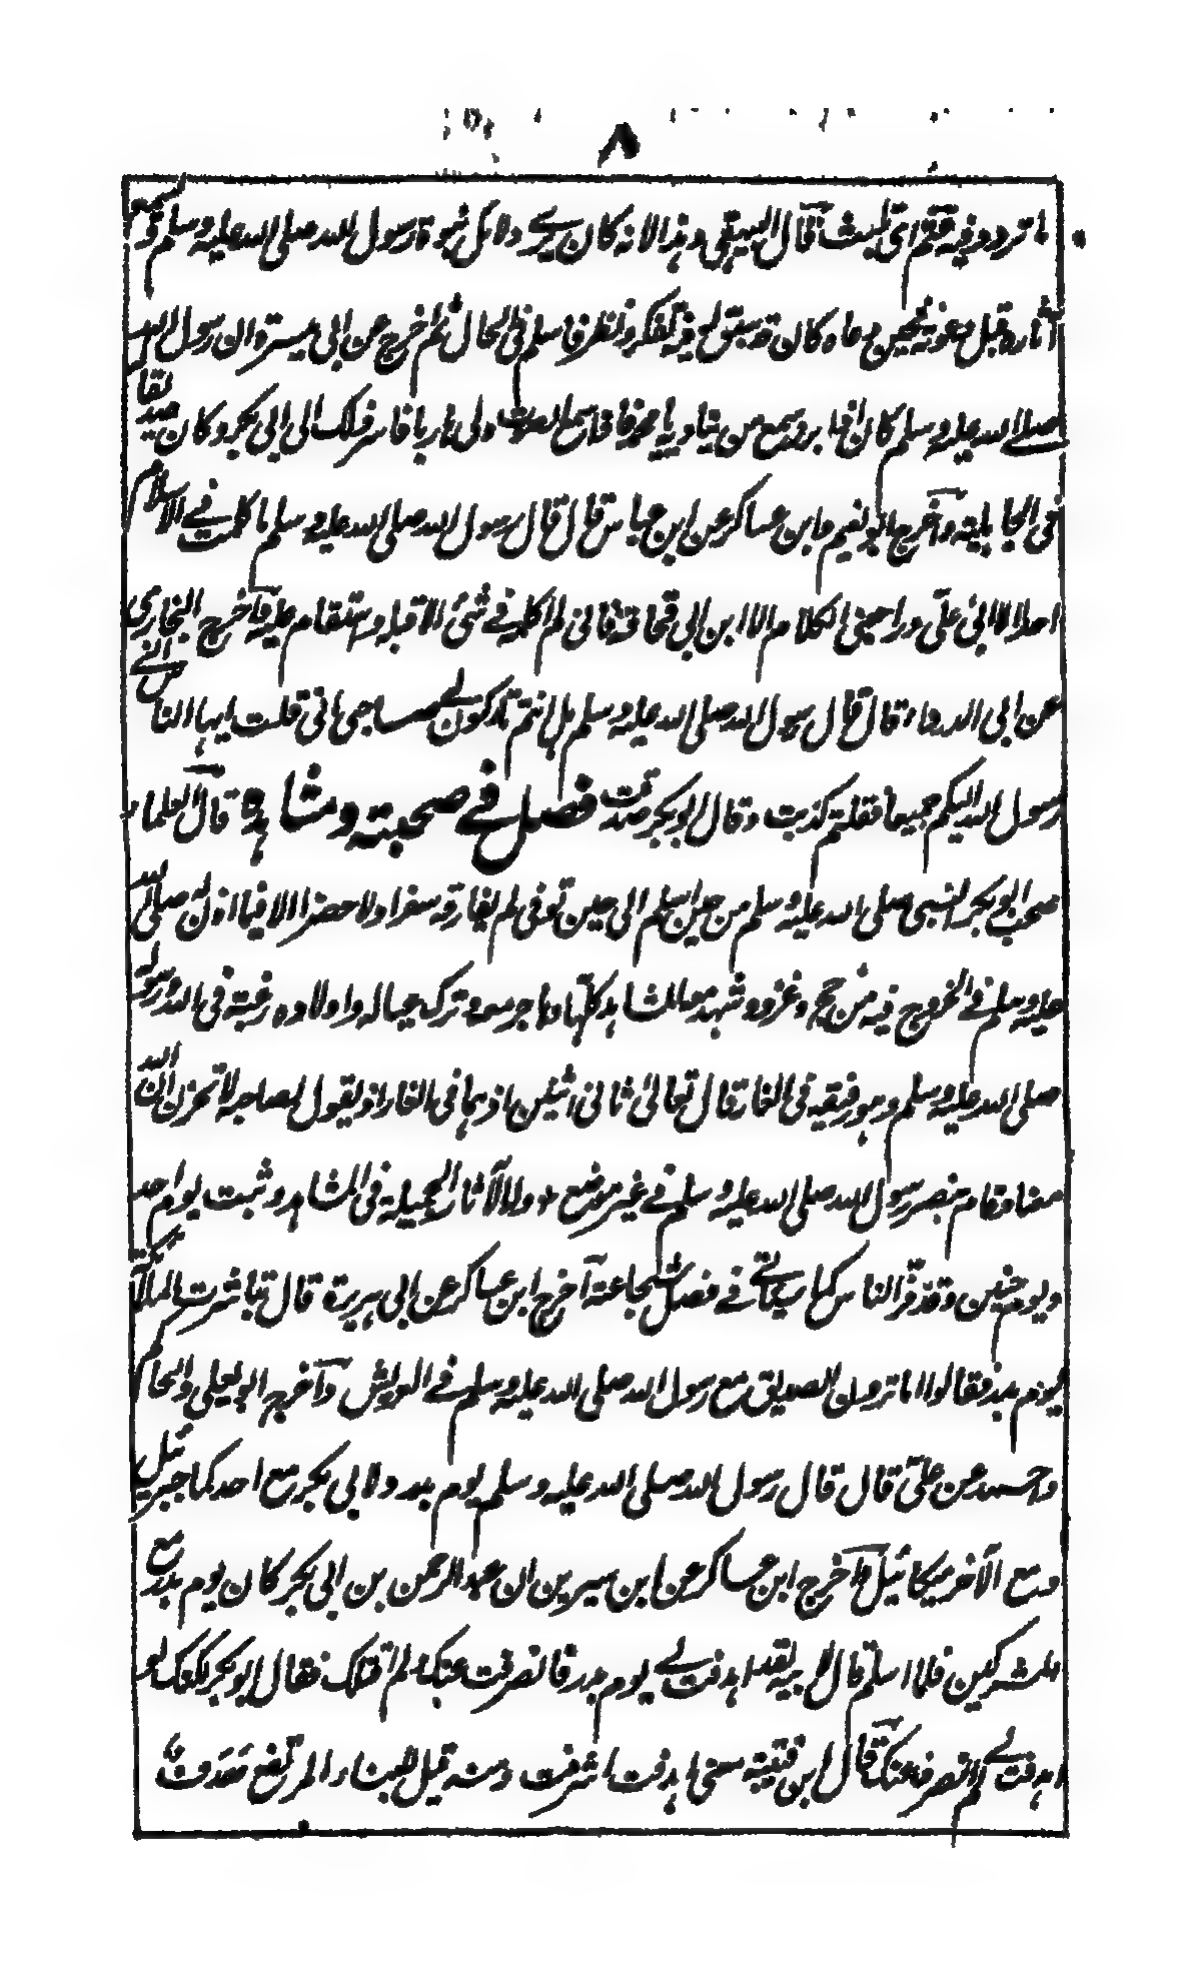 ٨
ما تردد فيه عتم اى لبث قال البيهقى وهذا لانه كان يرى دلائل نبوة رسول الله صلى الله عليه وسلم ويسمع
آثاره قبل دعوته فحين دعاه كان قد سبق له فيه تفكر ونظر فاسلم فى الحال ثم اخرج عن ابى ميسرة ان رسول الله
صلى الله عليه وسلم كان اذا برز سمع من يناديه يا محمد فاذا سمع الصوت ولى هاربا فاسر ذلك الى ابى بكر وكان صديقا
فى الجاهلية واخرج ابو نعيم وابن عساكر عن ابن عباس قال قال رسول الله صلى الله عليه وسلم ما كلمت فى الاسلام
احدا الا ابى على وراجعنى الكلام الا ابن ابى قحافة فانى لم اكلمه فى شئ الا قبله واستقام عليه واخرج البخارى
عن ابى الدرداء قال قال رسول الله صلى الله عليه وسلم هل انتم تاركون لى صاحبى انى قلت ايها الناس انى
رسول الله اليكم جميعا فقلتم كذبت وقال ابو بكر صدقت فصل فى صحبته ومشاهده قال العلماء
صحب ابو بكر النبى صلى الله عليه وسلم من حين اسلم الى حين توفى لم يفارقه سفرا ولا حضرا الا فيما اذن صلى الله
عليه وسلم فى الخروج فيه من حج وغزو وشهد معه المشاهد كلها وهاجر معه وترك عياله واولاده رغبة فى الله ورسوله
صلى الله عليه وسلم وهو رفيقه فى الغار قال تعالى ثانى اثنين اذ هما فى الغار اذ يقول لصاحبه لا تحزن ان الله
معنا وقام بنصر رسول الله صلى الله عليه وسلم فى غير موضع وله الآثار الجميلة فى المشاهد وثبت يوم احد
ويوم حنين وقد فر الناس كما سيأتى فى فصل شجاعته اخرج ابن عساكر عن ابى هريرة قال تباشرت الملائكة
يوم بدر فقالوا اما ترون الصديق مع رسول الله صلى الله عليه وسلم فى العريش واخرج ابو يعلى والحاكم
واحمد عن على قال قال رسول الله صلى الله عليه وسلم يوم بدر ولابى بكر مع احدكما جبرئيل
ومع الآخر ميكائيل واخرج ابن عساكر عن ابن سيرين ان عبد الرحمن بن ابى بكر كان يوم بدر مع
المشركين فلما اسلم قال لابيه لقد اهدفت لى يوم بدر فانصرفت عنك ولم اقتلك فقال ابو بكر لكنك لو
اهدفت لى لم انصرف عنك قال ابن قتيبة معنى اهدفت اشرفت ومنه قيل للبناء المرتفع هدف